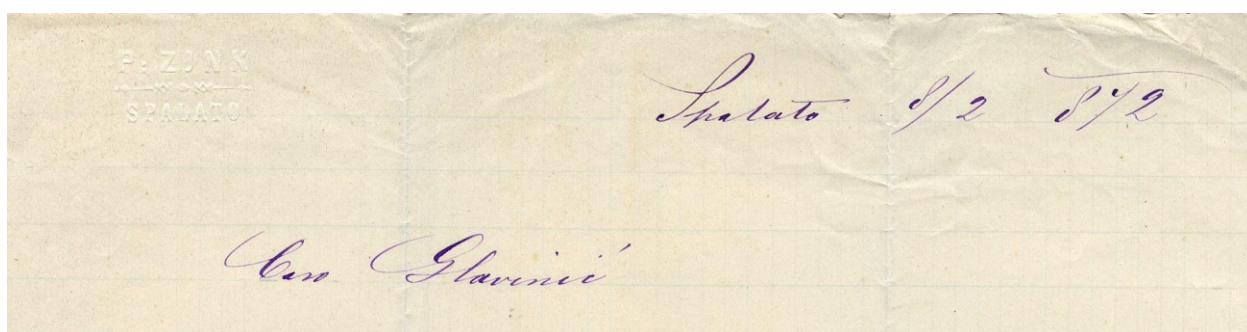 P. ZINK
SPALATO
Spalato 8/2 872
Caro Glavinić